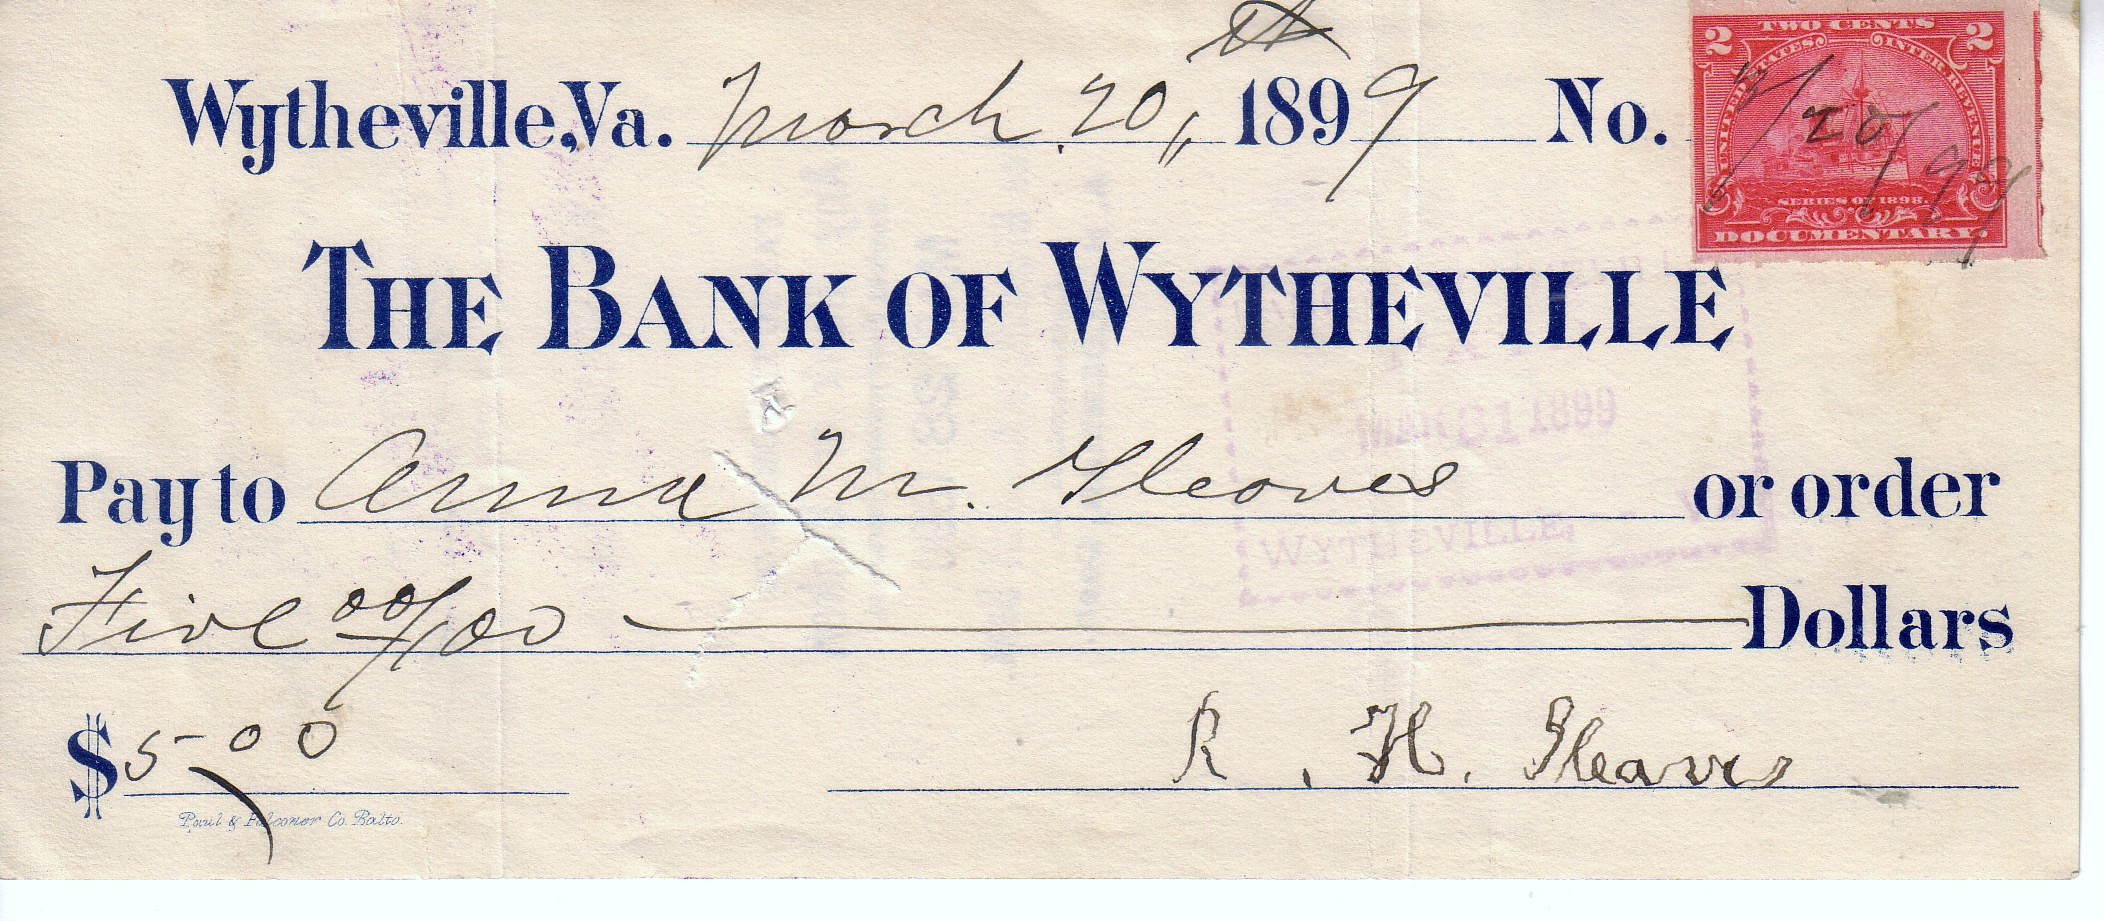 TWO CENTS
2 2
UNITED STATES INTER. REVENUE
3/20/99
SERIES OF 1898.
DOCUMENTARY.
Wytheville, Va. March 20, th 1899 No.
THE BANK OF WYTHEVILLE
MAR 21 1899
Pay to Anna M. Gleaves or order
WYTHEVILLE,
Five 00/100 Dollars
$5.00 R. H. Gleaves
Paul & Falconer Co. Balto.